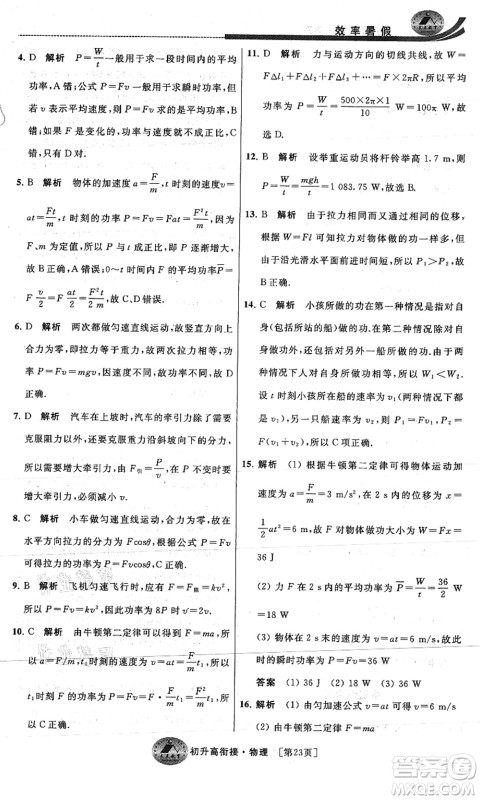 效率暑假
4. D 解析 P=W/t 一般用于求一段时间内的平均
功率,也可以用于求瞬时功率,A 错;公式 P=Fv
既可以用于求瞬时功率,也可以求平均功率,B
错;如果 F 是变化的,功率与速度不成正比,C
错;只有 D 对.
5. B 解析 物体的加速度 a=F/m,t 时刻的速度 v=
at=Ft/m,t 时刻的功率 P=Fv=Fat=F²t/m,由于
F、m 为定值,所以 P∝t,即 P 逐渐增大,
故 B 正确,A 错误;0~t 时间内的平均功率 P=
F v/2=F/2·Ft/m=F²t/2m,故 C、D 错误.
6. D 解析 两次都做匀速直线运动,即合力为
零,即拉力与重力相等,拉力相等.拉力的瞬时
功率为 P=Fv=mgv,功率相等,故 D 正确.
7. D 解析 汽车在上坡时,汽车的牵引力除了需要
克服阻力以外,还要克服重力沿斜坡向下的分力,
所以需要增大牵引力,由 P=F牵v 可知,需要降低速度
以增大牵引力,所以 D 正确.
8. C 解析 小车做匀速直线运动,合力为零,所以在
水平方向拉力的分力为 Fcosθ,根据公式 P=Fv
可得拉力的功率为 P=Fvcosθ,C 正确.
9. B 解析 飞机匀速飞行时,根据平衡条件可得 F=F阻
=kv²,所以发动机的功率为 P=Fv=kv³,B 正确.
10. C 解析 由牛顿第二定律可以得到,F=ma,所
以 a=F/m,t₁ 时刻的速度为 v=at=F/m t₁,所以
t₁ 时刻 F 的功率为 P=Fv=F·F/m t₁=F²/m
t₁,所以 C 正确.
11. C 解析 力与运动方向的切线共线,故 W=
FΔl₁+FΔl₂+FΔl₃+…=F×2πR,所以平均
功率为 P=W/t=500×2π×1/10 W=100π W,故
选 D.
12. B 解析 设举重运动员将杆铃举高 1.7 m,则
P=W/t=mgh/t=1 083.75 W,故选 B.
13. B 解析 由于拉力相同且通过相同的位移,根据
W=Fl,可知拉力对物体做的功一样多,即 W₁=W₂;由
于沿光滑水平面前进时加速度大,所以用时少,
所以 P₁>P₂,故 B 正确.
14. C 解析 小孩所做的功在第一种情况是指对自
身(包括所站的船)做的功,在第二种情况除对自
身(包括所站的船)做功外,还要对另一船做功,
所以 W₁<W₂,两种情况下用力相同,所以第一
种情况小孩所在的船速度与第二种情况相同,设
为 v₁,另一只船速率为 v₂,则 P₁=Fv₁<P₂=
F(v₁+v₂),故 C 正确.
15. 解析 (1) 根据牛顿第二定律可得物体运动加
速度 a=F/m=3 m/s²,2 s 末物体的位移为 x=
1/2 at²=6 m,所以力 F 对物体所做的功 W=Fx=
36 J
(2) 力 F 在 2 s 内的平均功率为 P=W/t=36/2 W
=18 W
(3) 物体在 2 s 末的速度为 v=at=6 m/s,所以
2 s 末的瞬时功率为 P=Fv=36 W
答案 (1) 36 J (2) 18 W (3) 36 W
16. 解析 (1) 由匀加速公式 v=at 可得 a=2 m/s²
(2) 由牛顿第二定律 F=ma,
初升高衔接·物理 [第23页]